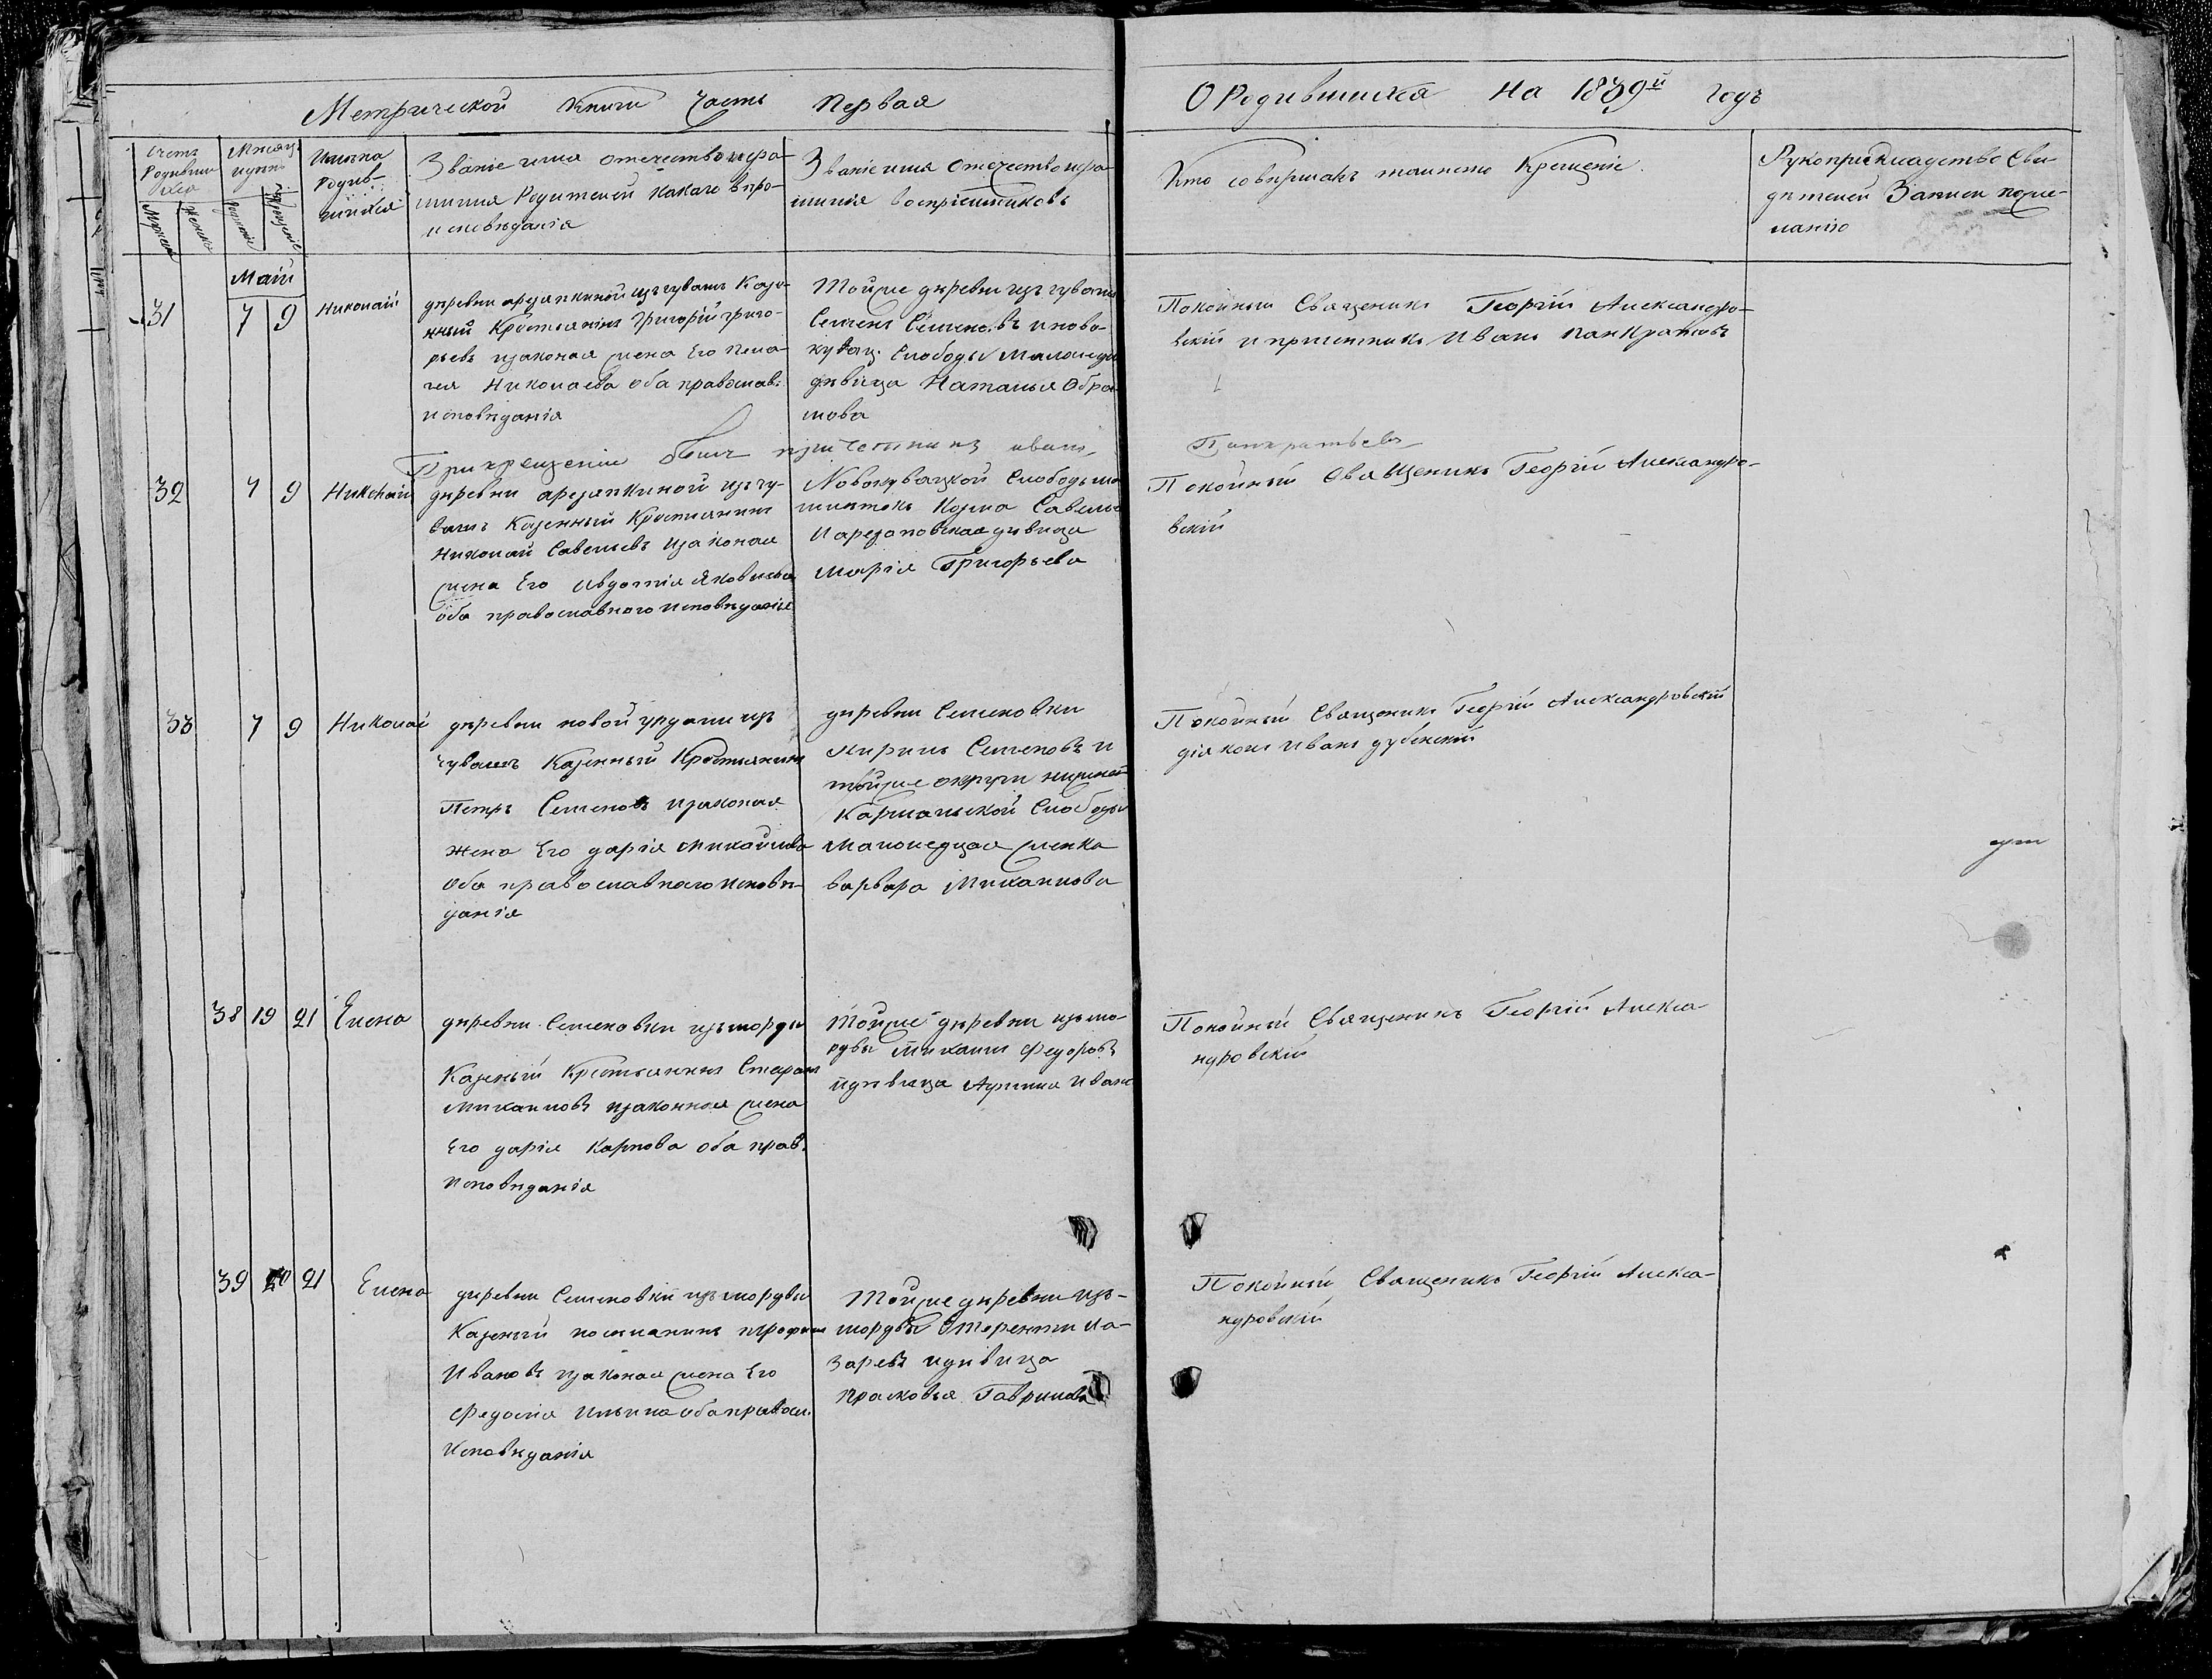 Метрической Книги Часть Первая
О Родившихся На 1839й годъ
Счетъ
Родивши
хся
Мужеск
Женска
Месяцъ
и день
рожденiе
Крещенiе
Имяна
Родив-
шихся
Званiе имя отечество и фа-
милия Родителей какаго веро-
исповеданiя
Званiе имя Отечество и фа-
милия воспрiемниковъ
Кто совершалъ таинство Крещенiе
Рукоприкладство Сви-
детелей Записи по же-
ланiю
Май
31
7
9
Николай
деревни арезапкиной изъ чувашъ Казе-
нный Крестьянинъ Григорiй Григо-
рьевъ и законая жена Его Пела-
гея Николаева оба православ:
исповеданiя
Тойже деревни изъ чувашъ
Семенъ Семеновъ и ново-
кувац. Слободы Малолетная
девица Наталья Обра-
мова
Покойный Священикъ Георгiй Александро-
вскiй и причетникъ Иванъ Панкратовъ
При крещенiи былъ причетникъ иванъ
Панкратьевъ
32
7
9
Николай
деревни арезапкиной изъ чу-
вашъ Казенный Крестьянинъ
Николай Савельевъ и законая
жена Его Авдотiя Яковлева
оба православного исповеданiя
Новокувацкой Слободы ма
Козма Савельевъ
и арезаповская девица
Марiя Григорьева
Покойный Священикъ Георгiй Александро-
вскiй
33
7
9
Николай
деревни новой урдали изъ
чувашъ Казенный Крестьянинъ
Петръ Семеновъ и законая
жена Его дарiя Михайлова
Оба православнаго испове-
данiя
деревни Семеновки
Кирилъ Семеновъ и
тойже округи нижней
Кармальской Слободы
Малолетная женка
варвара Михаилова
Покойный Священикъ Георгiй Александровскiй
дiяконъ Иванъ дубенскiй
38
19
21
Елена
деревни Семеновки изъ морды
Казеный Крестьянинъ Стефанъ
Михаиловъ и законная жена
Его дарiя Карпова оба прав.
Исповеданiя
Тойже деревни изъ мо-
рдвы Михаилъ Федоровъ
и девица Аринна Ивано
Покойный Священикъ Георгiй Алекса-
ндровскiй
39
20
21
Елена
деревни Семеновки изъ мордвы
Казеный поселянинъ трофимъ
Ивановъ и законая жена Его
Федосiя Ильина оба правосл.
Исповеданiя
Тойже деревни изъ-
мордвы Терентiй Ла-
заревъ и девица
Прасковья Гаврилова
Покойный Священикъ Георгiй Алекса-
ндровскiй